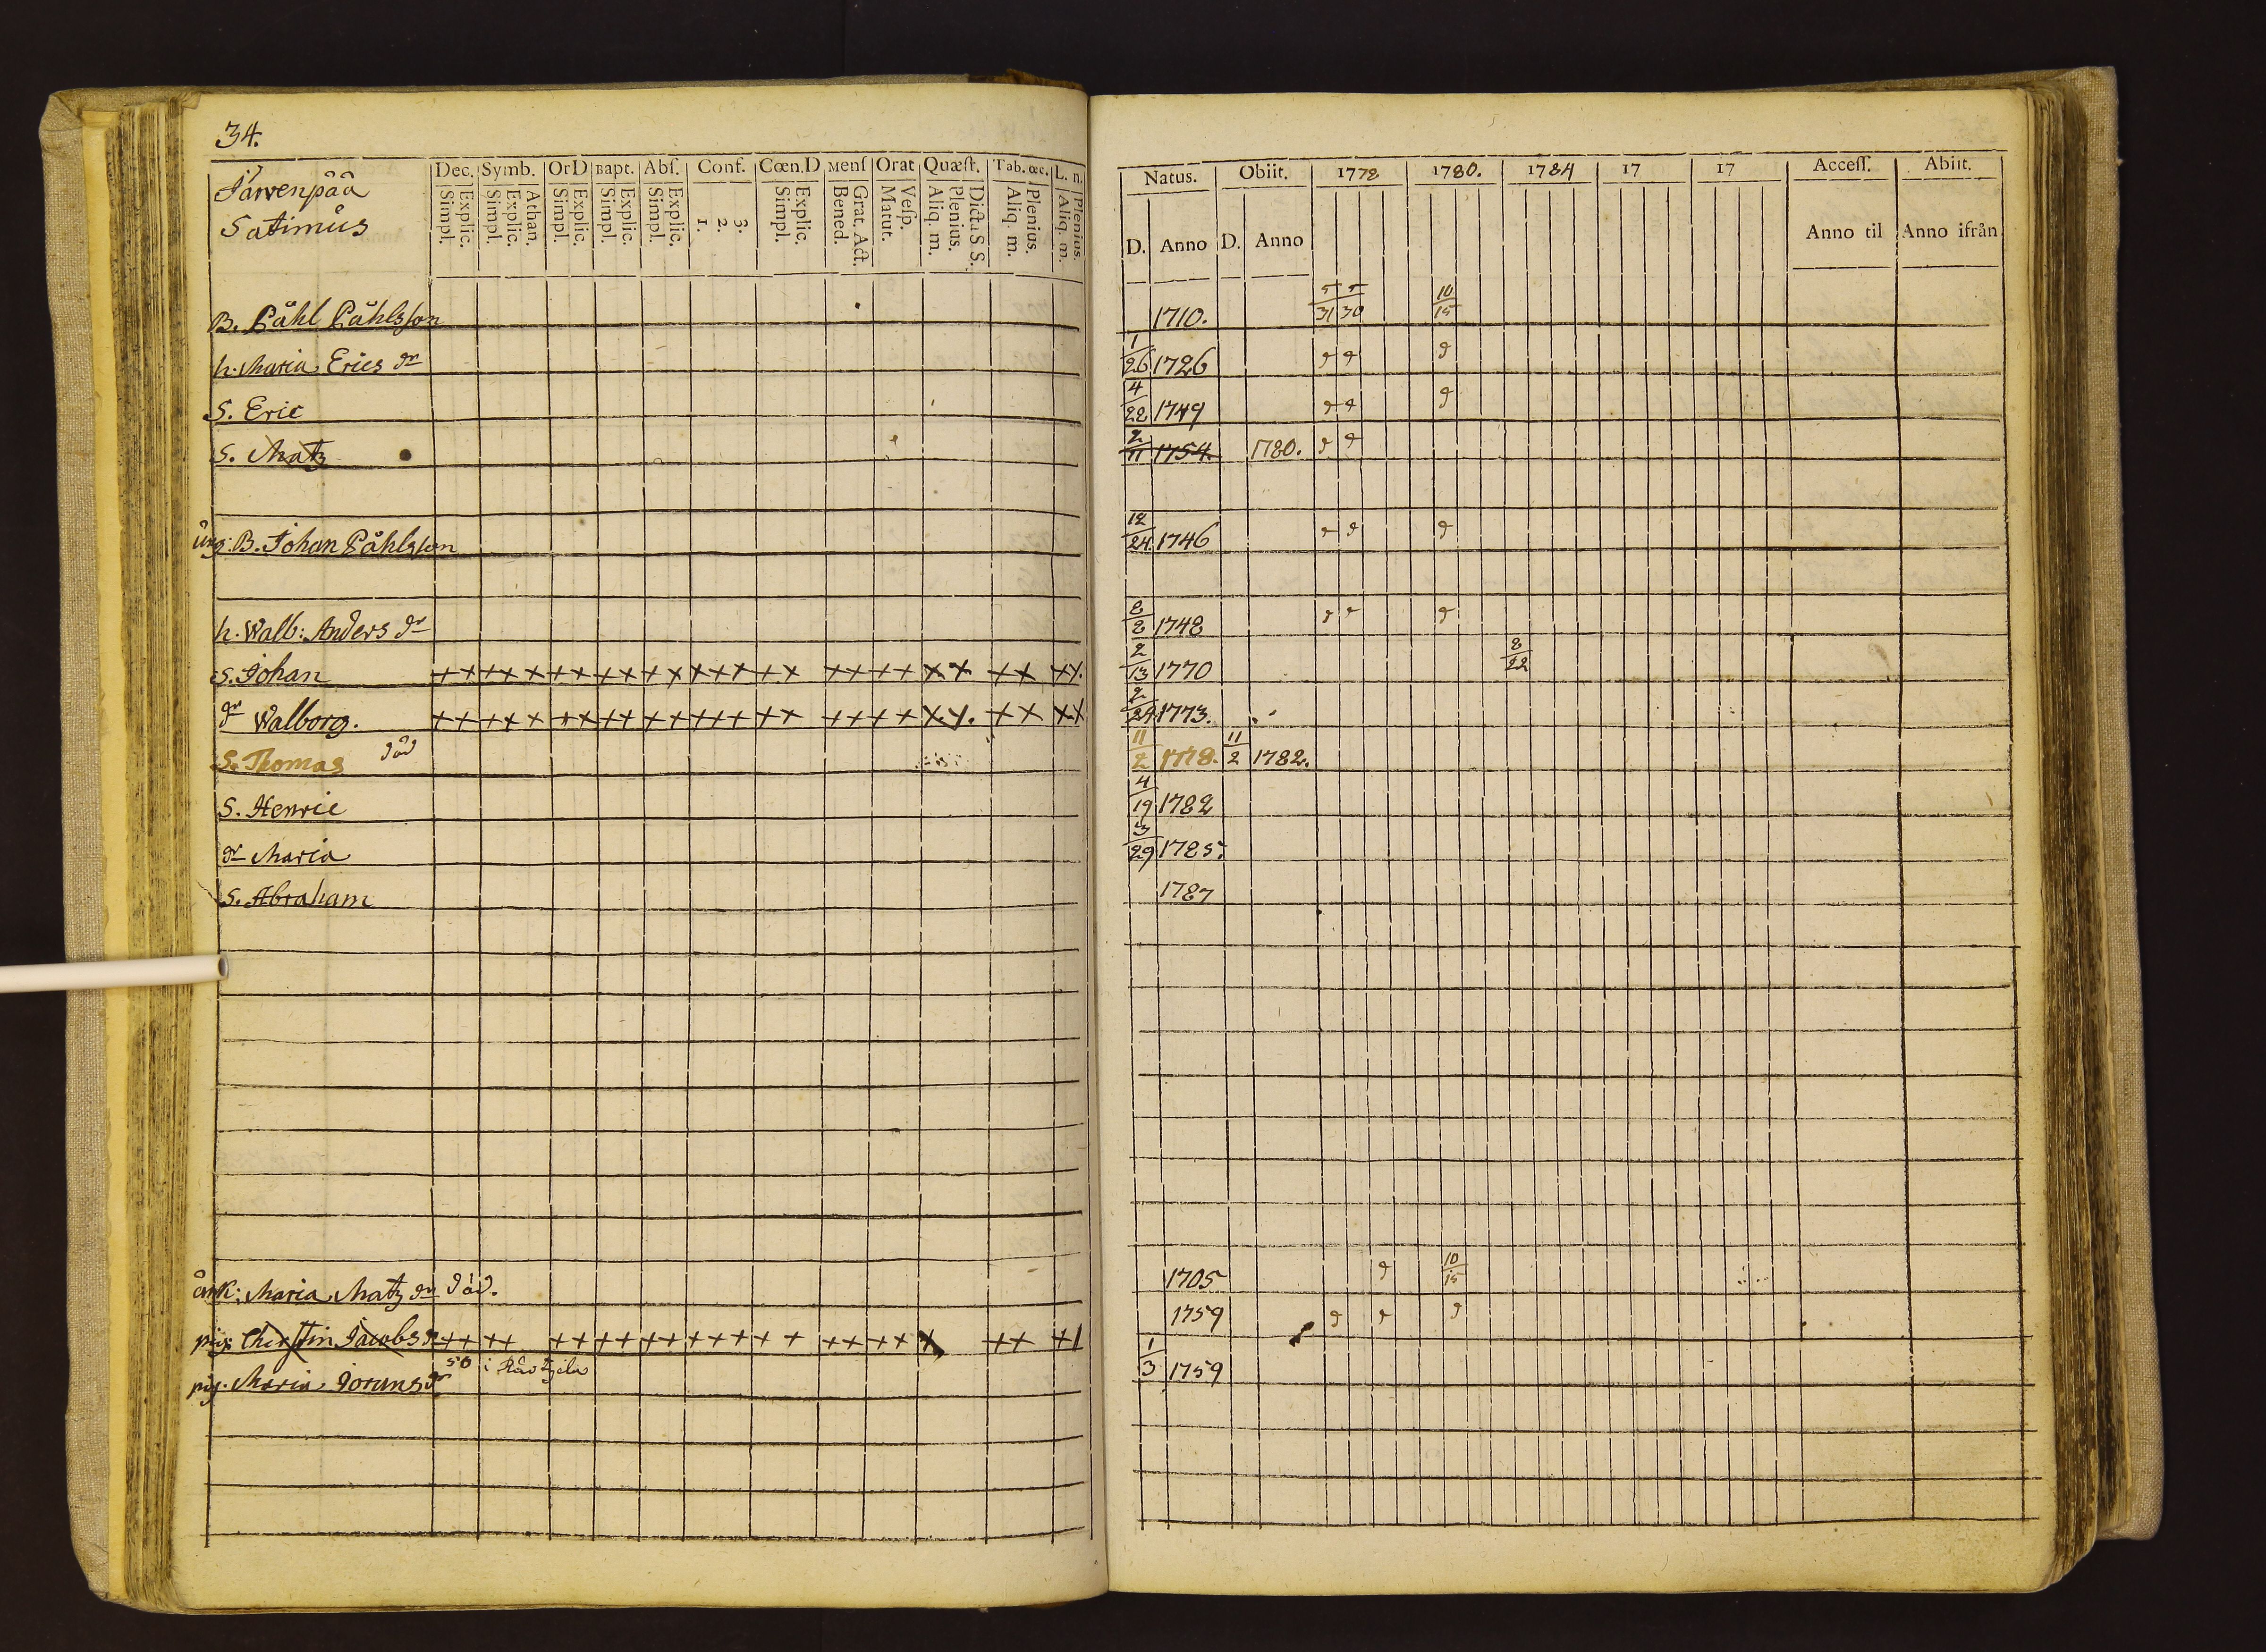 34.
Järvenpää
Satimus
Dec. Symb. OrD Bapt. Abſ. Conf. Cœn.D Menſ Orat Quæſt. Tab. œc. L. n.
Explic. Simpl. Athan. Explic. Simpl. Explic. Simpl. Explic. Simpl. Explic. Simpl. 3. 2. 1. Explic. Simpl. Grat. Act. Bened. Veſp. Matut. Dicta S S. Plenius. Aliq. m. Plenius. Aliq. m. Plenius. Aliq. m.
Natus. Obiit. 1778 1780. 1784 17 17 Acceſſ. Abiit.
D. Anno D. Anno Anno til Anno ifrån
B. Påhl Påhlsson 1710. 5/31 5/30 10/15
h. Maria Erics dr 1/26 1726
S. Eric 4/22 1749
S. Matz 2/11 1754. 1780.
üng: B. Johan Påhlsson 12/24 1746
h. Walb: Anders dr 8/2 1748
S. Johan ++ +++ ++ ++ ++ +++ ++ ++ ++ ++ ++ ++ 2/13 1770 8/22
dr Walborg. ++ +++ ++ ++ ++ +++ ++ ++ ++ ++ ++ ++ 2/24 1773.
S. Thomas död 11/2 1778. 11/2 1782.
S. Henric 4/19 1782
dr Maria 3/29 1785.
S. Abraham 1787
änk: Maria Matz dr död. 1705 10/15
pig. Cherstin Jacobs dr ++ ++ ++ ++ ++ +++ ++ ++ ++ + ++ +1 1759
50 i
pig. Maria Jörans dr 1/3 1759